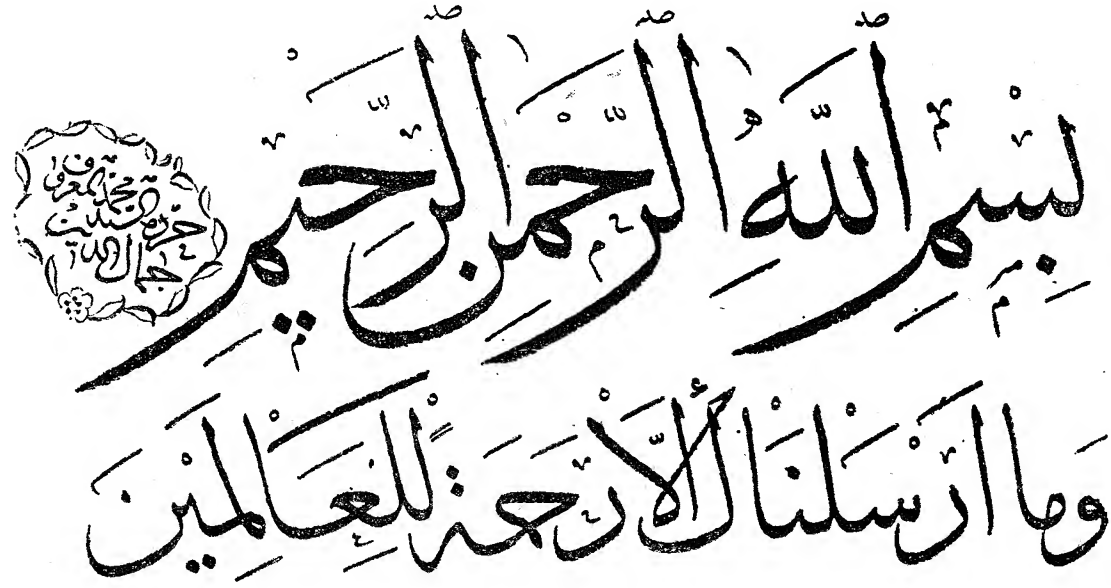 بِسْمِ اللّٰهِ الرَّحْمٰنِ الرَّحِيْمِ
وَمَا اَرْسَلْنَاكَ اِلَّا رَحْمَةً لِّلْعَالَمِيْنَ